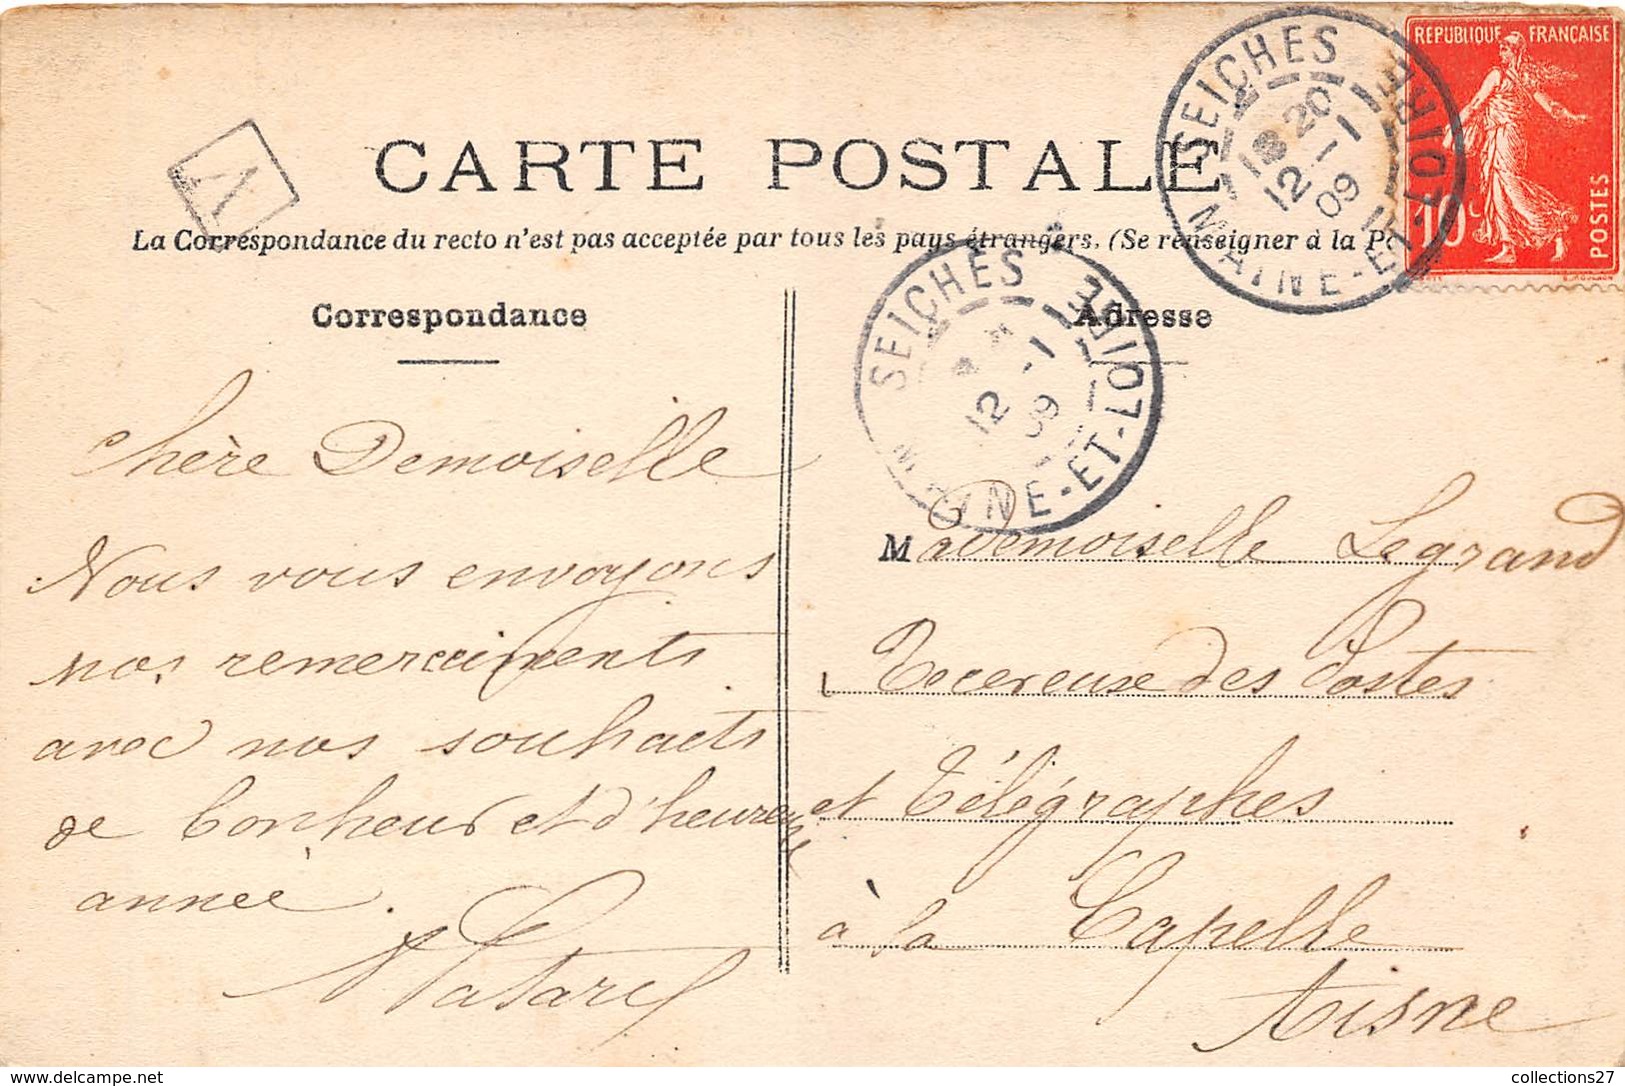 REPUBLIQUE FRANÇAISE
10c
POSTES
SEICHES
MAINE-ET-LOIRE
18 20
12 -1
09
CARTE POSTALE
La Correspondance du recto n'est pas acceptée par tous les pays étrangers. (Se renseigner à la Po
Correspondance
Adresse
SEICHES
MAINE-ET-LOIRE
12 -1
09
Chère Demoiselle
Nous vous envoyons
nos remerciements
avec nos souhaits
de bonheur et d'heureuse
année.
Mademoiselle Legrand
Receveuse des Postes
et Télégraphes
à la Capelle
Aisne
collections27